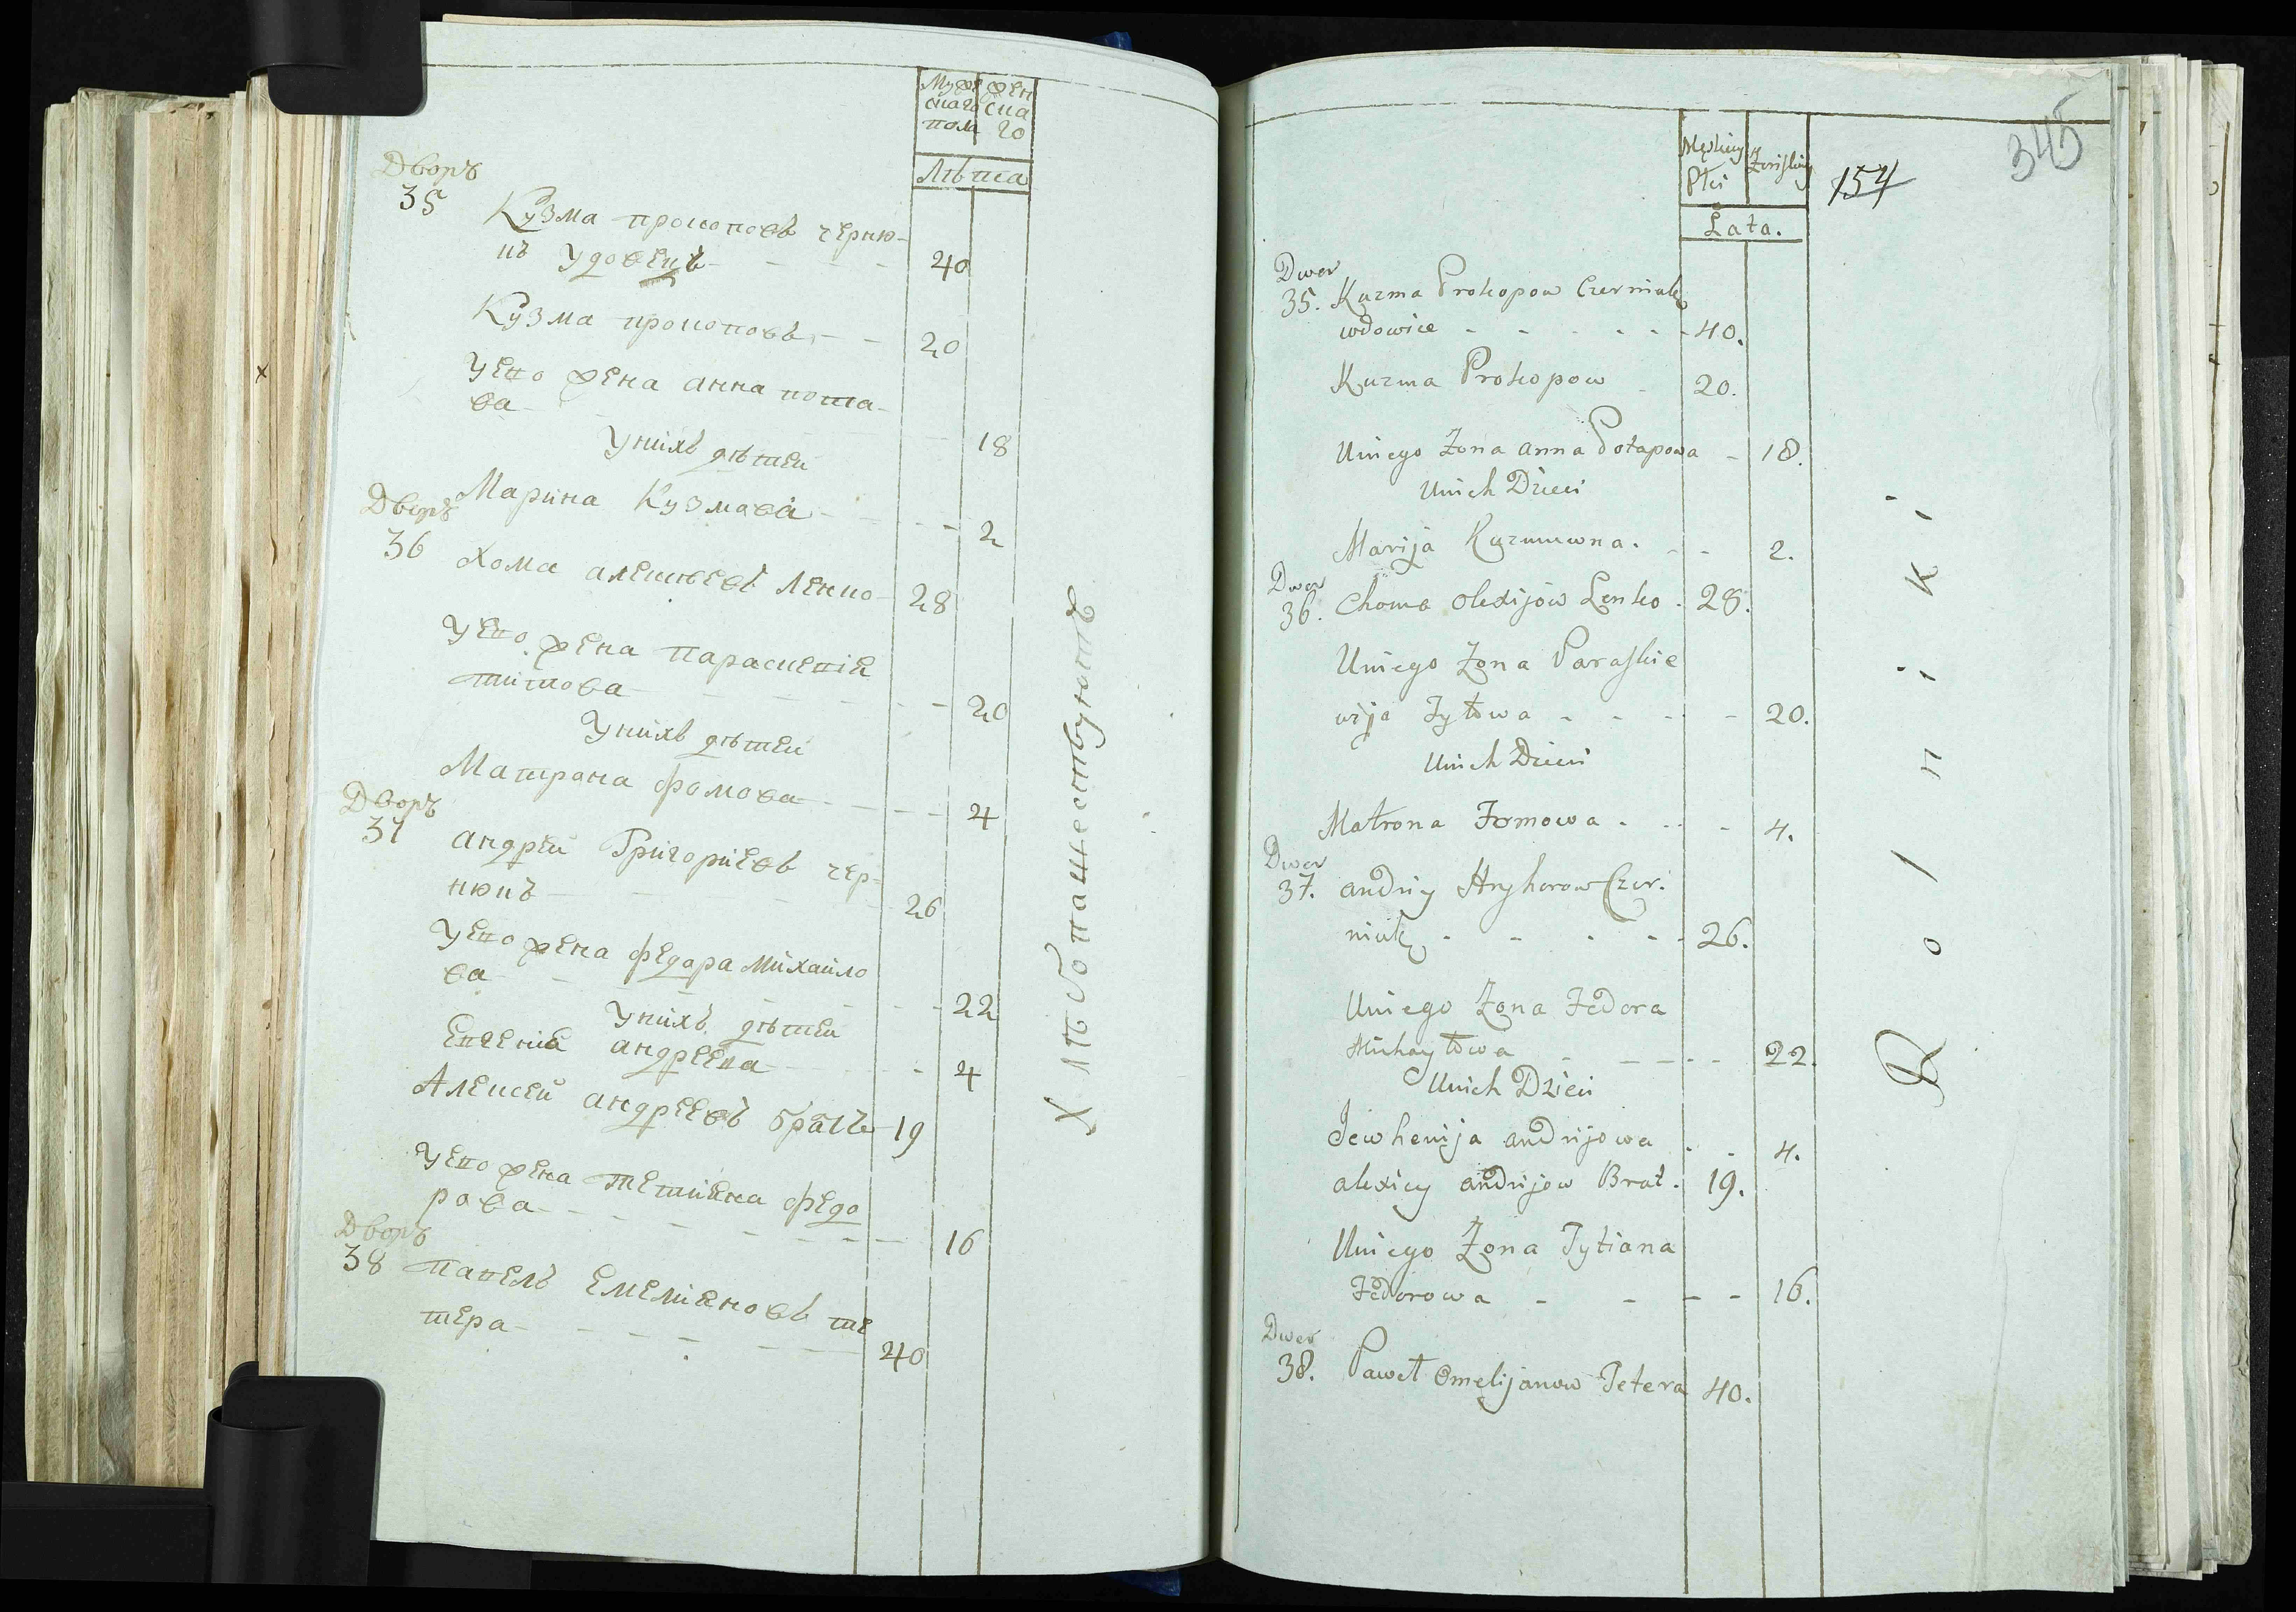 Мужескаго пола
женскаго
Лѣта
Дворъ
35
Кузма прокоповъ черню-
къ удовецъ - - - 40
Кузма прокоповъ - - 20
У него жена анна пота-
ва - - 18
У нихъ дѣтей
Марина Кузмова - - - 2
Дворъ
36 Хома алексѣевъ Ленко - 28
У него жена параскевія
титова - - - 20
У нихъ дѣтей
Матрона фомова - - - 4
Дворъ
37 андрѣй Григориевъ чер-
нюкъ - - - 26
У него жена федора михайло
ва - - - 22
У нихъ дѣтей
Евгения андреева - - - 4
Алексей андреевъ братъ 19
У него жена тетияна федо
рова - - - 16
Дворъ
38 павелъ емелияновъ те
тера - - - 40
Хлѣбопашествуютъ
345
154
Męskiey Płci
Żeńskiey
Lata.
Dwor
35. Kuzma Prokopow Czerniuk
wdowiec - - - 40.
Kuzma Prokopow - 20.
Uniego Żona anna Potapowa - 18.
Unich Dzieci
Marija Kuzmuwna. - - 2.
Dwor
36. Choma Olexijow Lenko. 28.
Uniego Żona Paraskie
wija Tytowa - - - 20.
Unich Dzieci
Matrona Fomowa - - - 4.
Dwor
37. andriy Hryhorow Czer.
niuk - - - 26.
Uniego Żona Fedora
Michayłowa - - - 22.
Unich Dzieci
Jewhenija andrijowa - - 4.
alexiey andrijow Brat. 19.
Uniego Żona Tytiana
Fedorowa - - - 16.
Dwor
38. Paweł Omelijanow Tetera 40.
Rolniki